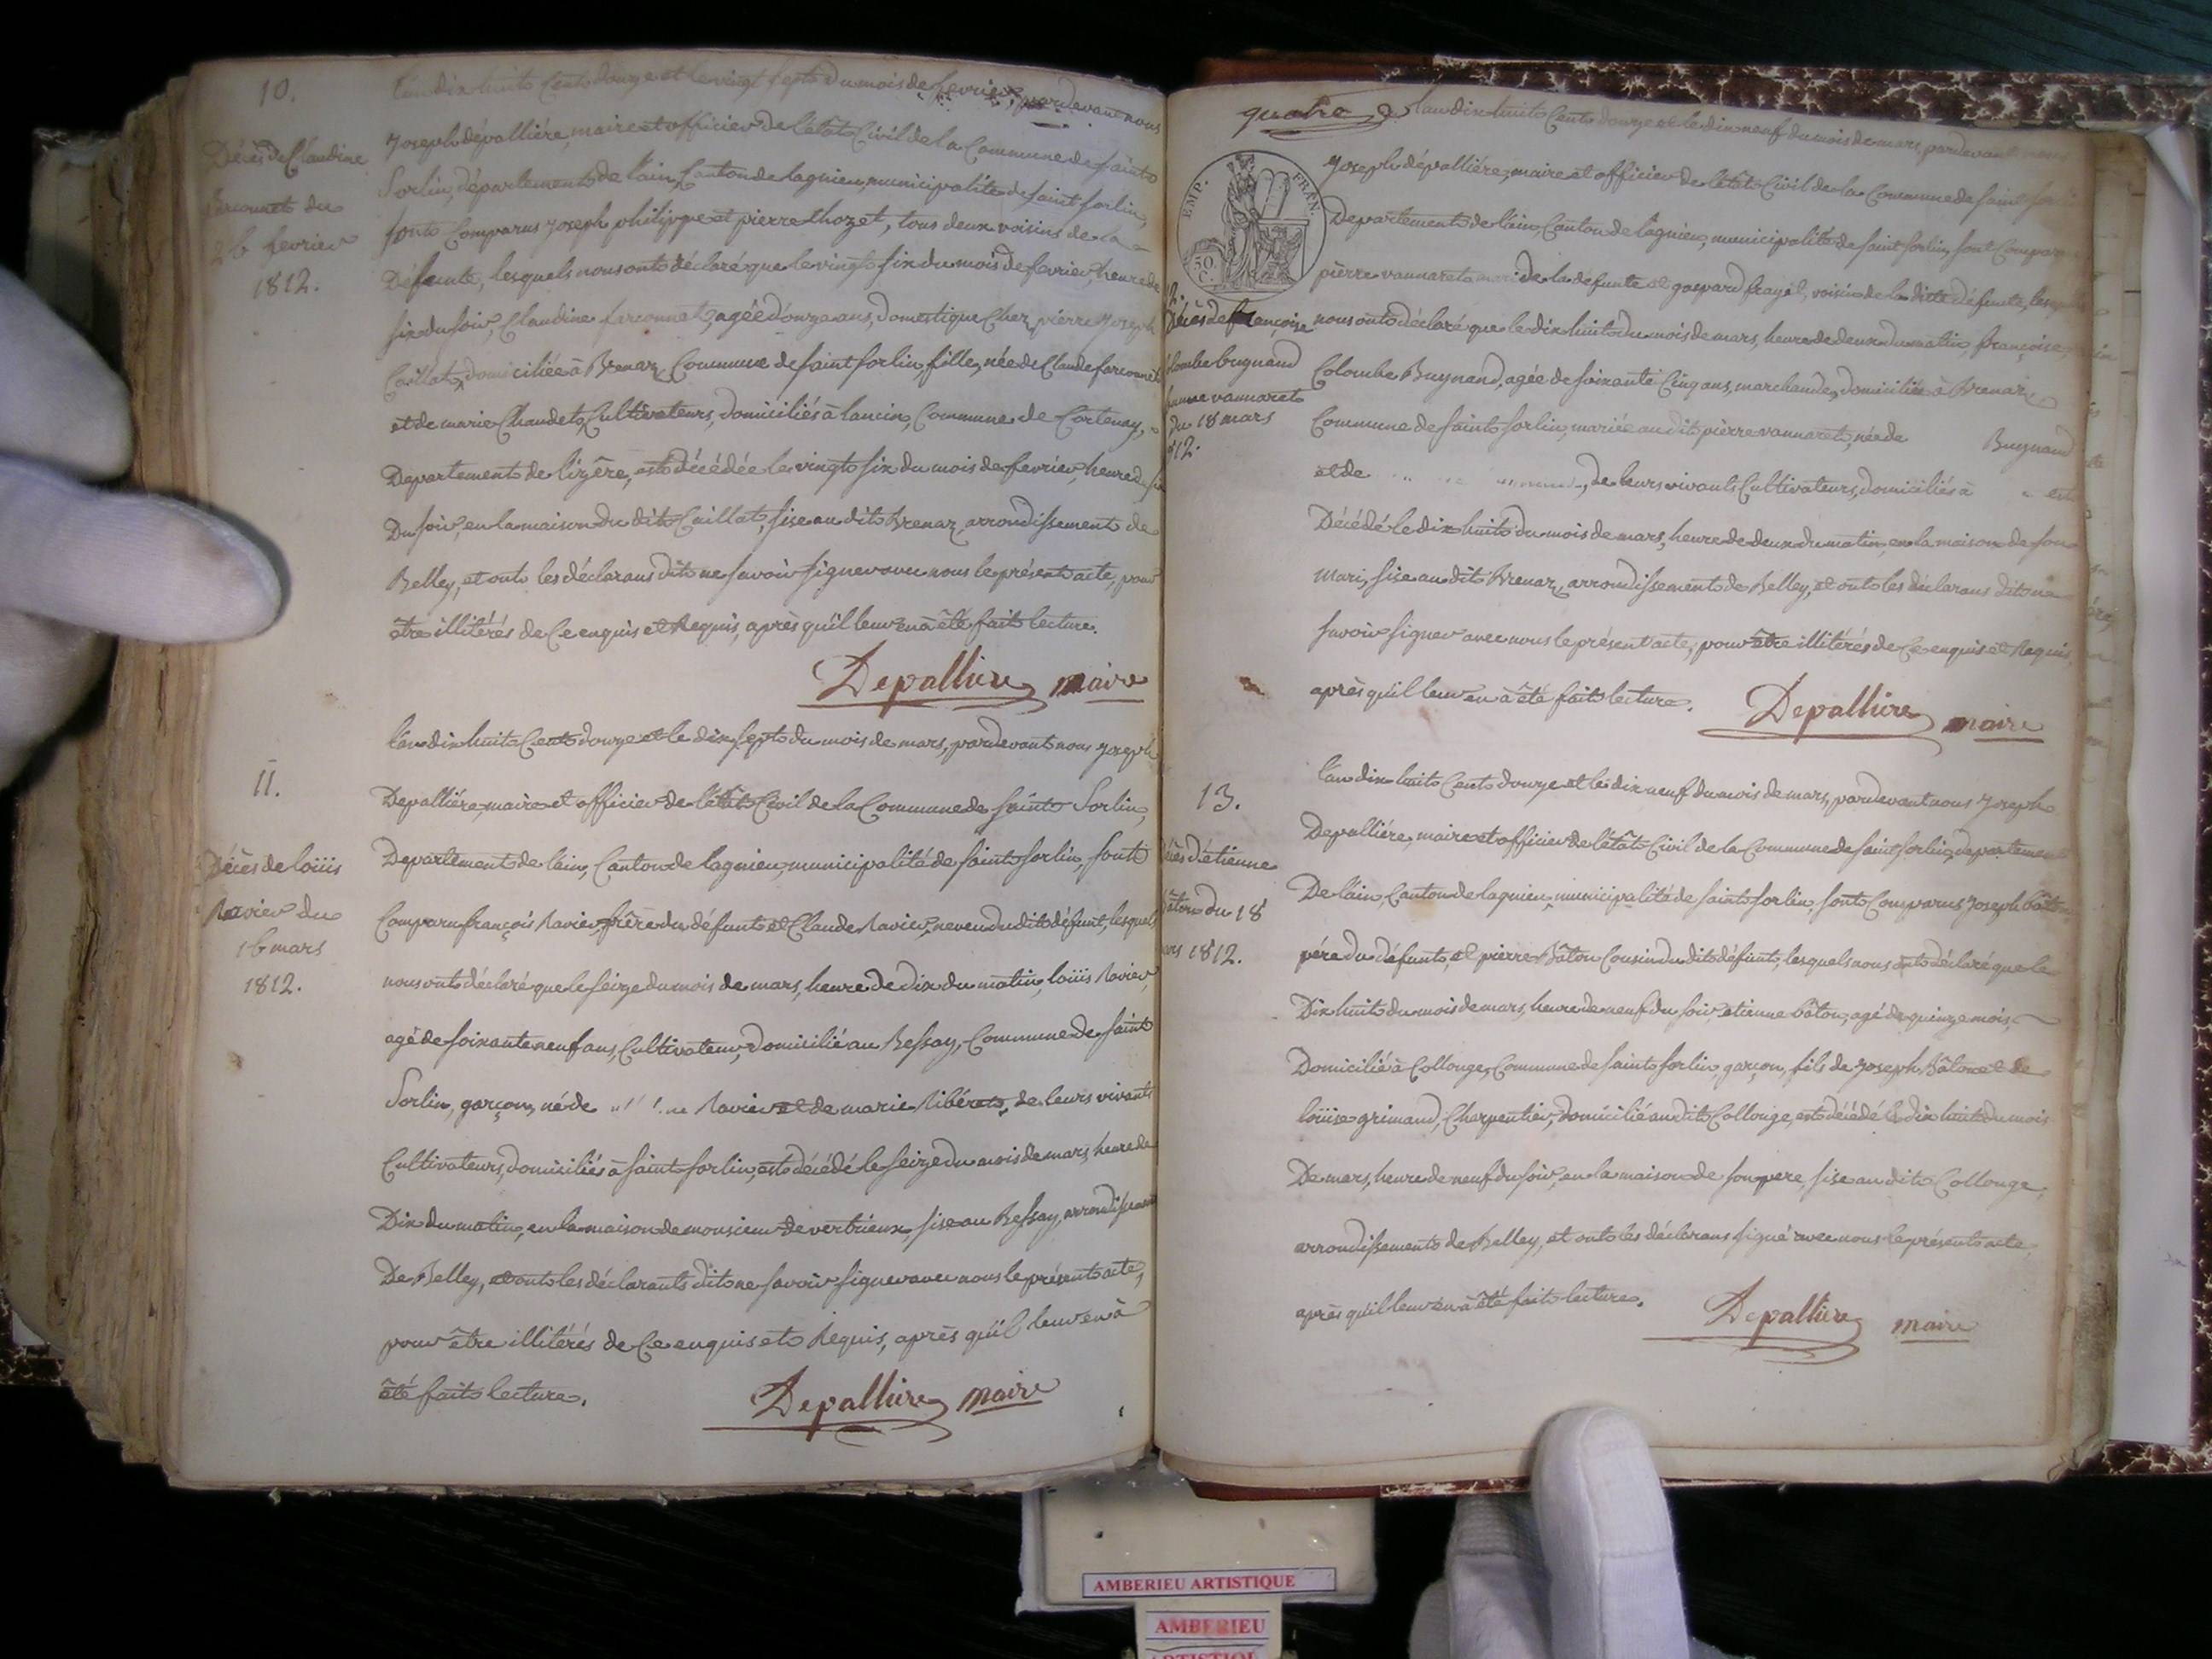 10.
L'an dix huit Cent douze et le vingt sept du mois de fevrier, pardevant nous
Décès de Claudine
farconnet du
26 fevrier
1812.
Joseph dépalliére, maire et officier de l'état Civil de la Commune de saint
Sorlin, département de l'ain, Canton de lagnieu, municipalité de saint sorlin,
sont Comparus joseph philippe et pierre thozet, tous deux voisins de la
Défunte, lesquels nous ont déclaré que le vingt six du mois de fevrier, heure de
six du soir, Claudine farconnet, agée d'onze ans, domestique Chez pierre joseph
Caillat, domiciliée à Brenaz, Commune de saint sorlin, fille, née de Claude farconnet
et de marie Chaudet, Cultivateurs, domiciliés à lancin, Commune de Cortenay,
Departement de lizêre, est décédée le vingt six du mois de fevrier, heure de six
Du soir, en la maison du dit Caillat, sise au dit Brenaz, arrondissement de
Belley, et ont les déclarans dit ne savoir signer avec nous le présent acte, pour
être illitérés de Ce enquis et Requis, après qu'il leur en à été fait lecture.
Depalliere maire
11.
Décès de loüis
Ravier du
16 mars
1812.
l'an dix huit Cent douze et le dix sept du mois de mars, pardevant nous joseph
Depalliére, maire et officier de l'état Civil de la Commune de saint Sorlin,
Departement de l'ain, Canton de lagnieu, municipalité de saint sorlin, sont
Comparu françois Ravier, frêre du défunt et Claude Ravier, neveu du dit défunt, lesquels
nous ont déclaré que le seize du mois de mars, heure de dix du matin, loüis Ravier,
agé de soixante neuf ans, Cultivateur, domicilié au Bessay, Commune de saint
Sorlin, garçon, né de Ravier et de marie Ribéret, de leurs vivants
Cultivateurs, domiciliés à saint sorlin, est décédé le seize du mois de mars, heure de
Dix du matin, en la maison de monsieur de vertrieux, sise au Bessay, arrondissement
De Belley, et ont les déclarants dit ne savoir signer avec nous le présent acte,
pour être illitérés de Ce enquis et Requis, après qu'il leur en à
été fait lecture.
Depalliere maire
quatre
EMP. FRAN.
50 C.
l'an dix huit Cent douze et le dix neuf du mois de mars, pardevant nous
Joseph dépalliére, maire et officier de l'état Civil de la Commune de saint sorlin
Departement de l'ain, Canton de lagnieu, municipalité de saint sorlin, sont Comparus
pièrre vannaret mari de la defunte et gaspard frayet, voisin de la ditte défunte, lesquels
12.
Décès de françoise
Colombe bugnand
femme vannaret
du 18 mars
1812.
nous ont déclaré que le dix huit du mois de mars, heure de deux du matin, françoise
Colombe Bugnand, agée de soixante Cinq ans, marchande, domiciliée à Brenaz
Commune de saint Sorlin, mariée au dit pièrre vannaret, née de Bugnand
et de de leurs vivants Cultivateurs, domiciliés à est
Décédé le dix huit du mois de mars, heure de deux du matin, en la maison de son
Mari, sise au dit Brenaz, arrondissement de Belley, et ont les déclarans dit ne
savoir signer avec nous le présent acte, pour être illitérés de Ce enquis et Requis,
après qu'il leur en à été fait lecture.
Depalliere maire
13.
Décès d'étienne
bâton du 18
mars 1812.
l'an dix huit Cent douze et le dix neuf du mois de mars, pardevant nous Joseph
Depalliére, maire et officier de l'état Civil de la Commune de saint sorlin, departement
De l'ain, Canton de lagnieu, municipalité de saint sorlin, sont Comparus joseph bâton
pére du défunt, et pierre Bâton Cousin du dit défunt, lesquels nous ont déclaré que le
Dix huit du mois de mars, heure de neuf du soir, etienne bâton, agé de quinze mois,
Domicilié à Collonge, Commune de saint sorlin, garçon, fils de joseph Bâton et de
loüise grimand, Charpentier, domicilié au dit Collonge, est décédé le dix huit du mois
De mars, heure de neuf du soir, en la maison de son pere, sise au dit Collonge,
arrondissement de Belley, et ont les déclarans signé avec nous le présent acte,
après qu'il leur en à été fait lecture.
Depalliere maire
AMBERIEU ARTISTIQUE
AMBERIEU
ARTISTIQUE